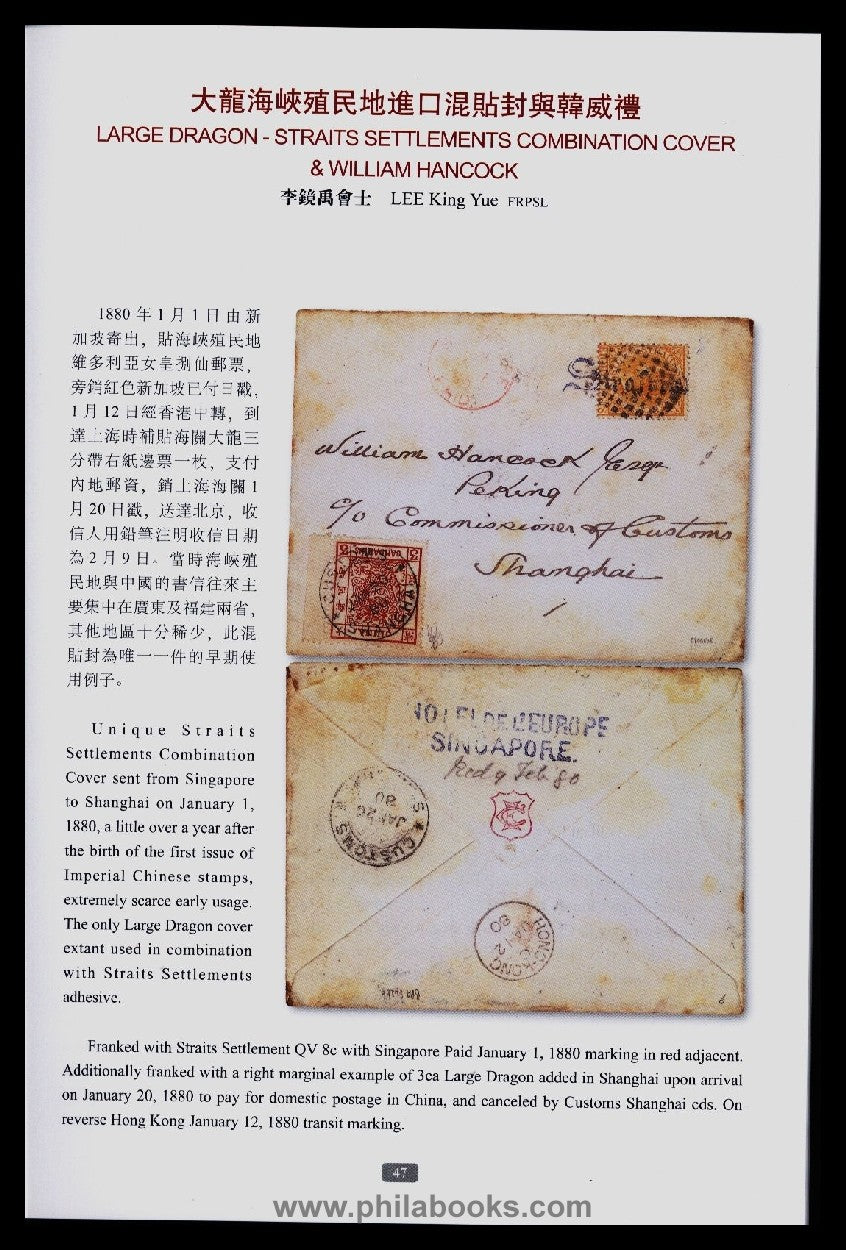 大龍海峽殖民地進口混貼封與韓威禮
LARGE DRAGON - STRAITS SETTLEMENTS COMBINATION COVER
& WILLIAM HANCOCK
李鏡禹會士 LEE King Yue FRPSL
1880 年 1 月 1 日由新
加坡寄出，貼海峽殖民地
維多利亞女皇捌仙郵票，
旁銷紅色新加坡已付日戳，
1 月 12 日經香港中轉，到
達上海時補貼海關大龍三
分帶右紙邊票一枚，支付
內地郵資，銷上海海關 1
月 20 日戳，送達北京，收
信人用鉛筆注明收信日期
為 2 月 9 日。當時海峽殖
民地與中國的書信往來主
要集中在廣東及福建兩省，
其他地區十分稀少，此混
貼封為唯一一件的早期使
用例子。
Unique Straits
Settlements Combination
Cover sent from Singapore
to Shanghai on January 1,
1880, a little over a year after
the birth of the first issue of
Imperial Chinese stamps,
extremely scarce early usage.
The only Large Dragon cover
extant used in combination
with Straits Settlements
adhesive.
William Hancock Esqr
Peking
c/o Commissioner of Customs
Shanghai
HOTEL DE L'EUROPE
SINGAPORE.
Recd 9 Feb. 80
CUSTOMS
JAN 20
80
HONG-KONG
JA 12
80
Franked with Straits Settlement QV 8c with Singapore Paid January 1, 1880 marking in red adjacent.
Additionally franked with a right marginal example of 3ca Large Dragon added in Shanghai upon arrival
on January 20, 1880 to pay for domestic postage in China, and canceled by Customs Shanghai cds. On
reverse Hong Kong January 12, 1880 transit marking.
47
www.philabooks.com